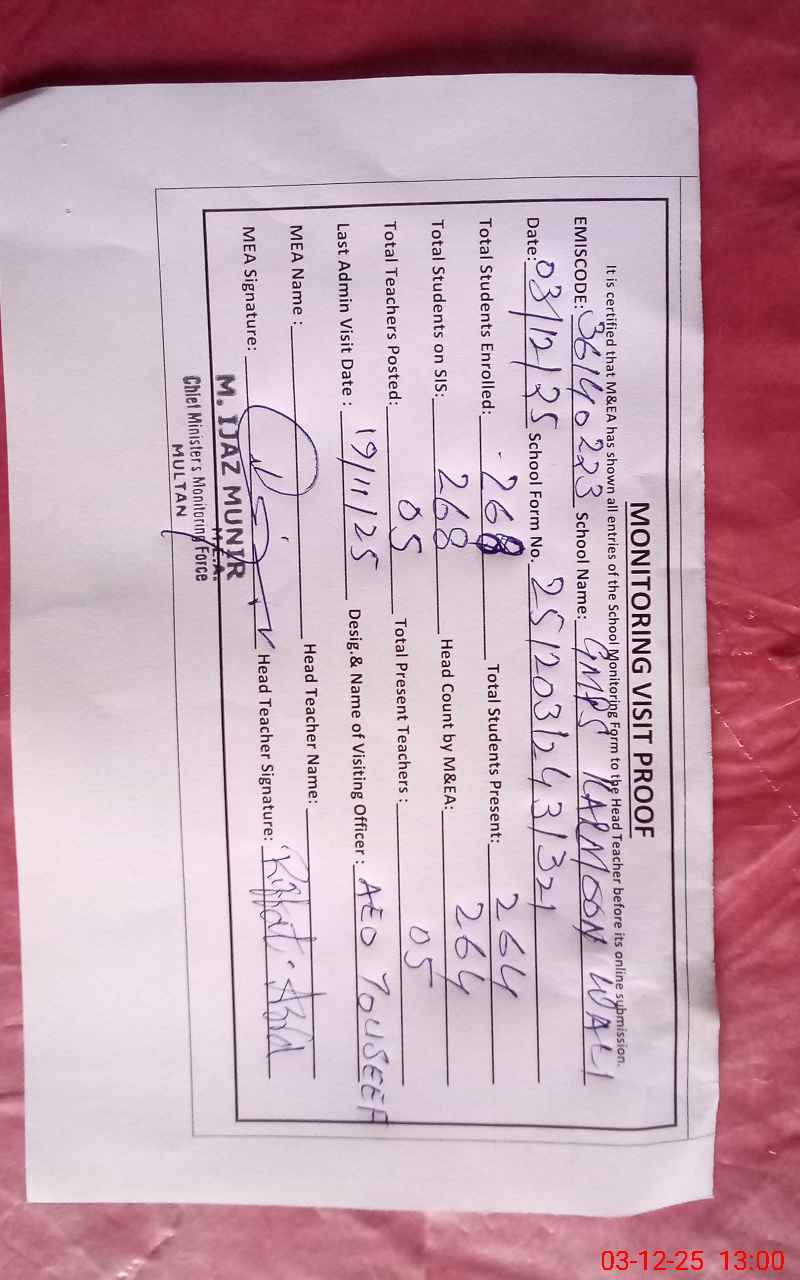 MONITORING VISIT PROOF
It is certified that M&EA has shown all entries of the School Monitoring Form to the Head Teacher before its online submission.
EMISCODE: 36140223 School Name: GMPS KARMOON WALI
Date: 03/12/25 School Form No. 25120312431321
Total Students Enrolled: 268 Total Students Present: 264
Total Students on SIS: 268 Head Count by M&EA: 264
Total Teachers Posted: 05 Total Present Teachers : 05
Last Admin Visit Date : 19/11/25 Desig.& Name of Visiting Officer : AEO YOUSEEF
MEA Name : Head Teacher Name:
MEA Signature: Head Teacher Signature: Riffat
M. IJAZ MUNIR
M.E.A.
Chief Minister's Monitoring Force
MULTAN
03-12-25 13:00